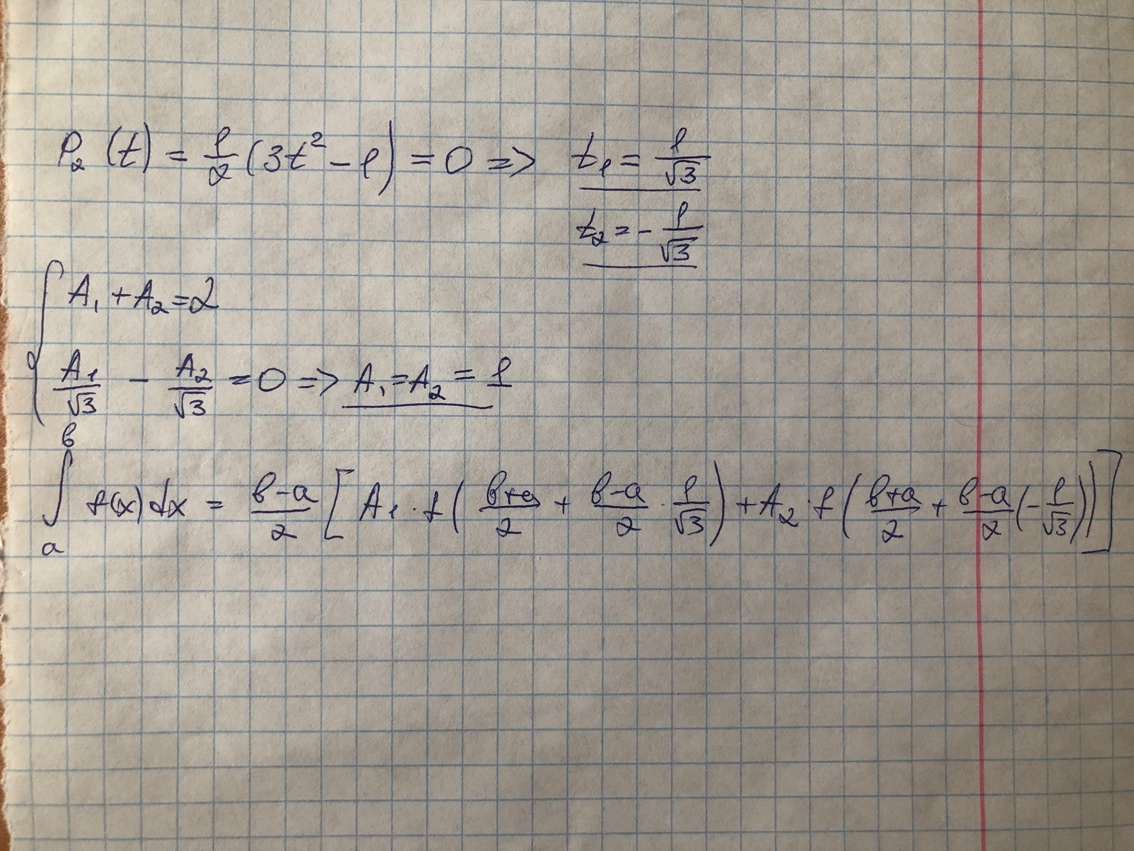 P₂(t) = 1/2 (3t² − 1) = 0 => t₁ = 1/√3
t₂ = − 1/√3
{ A₁ + A₂ = 2
A₁/√3 − A₂/√3 = 0 => A₁ = A₂ = 1
∫ₐᵇ f(x) dx = (b−a)/2 [ A₁ · f( (b+a)/2 + (b−a)/2 · 1/√3 ) + A₂ · f( (b+a)/2 + (b−a)/2 (− 1/√3) ) ]